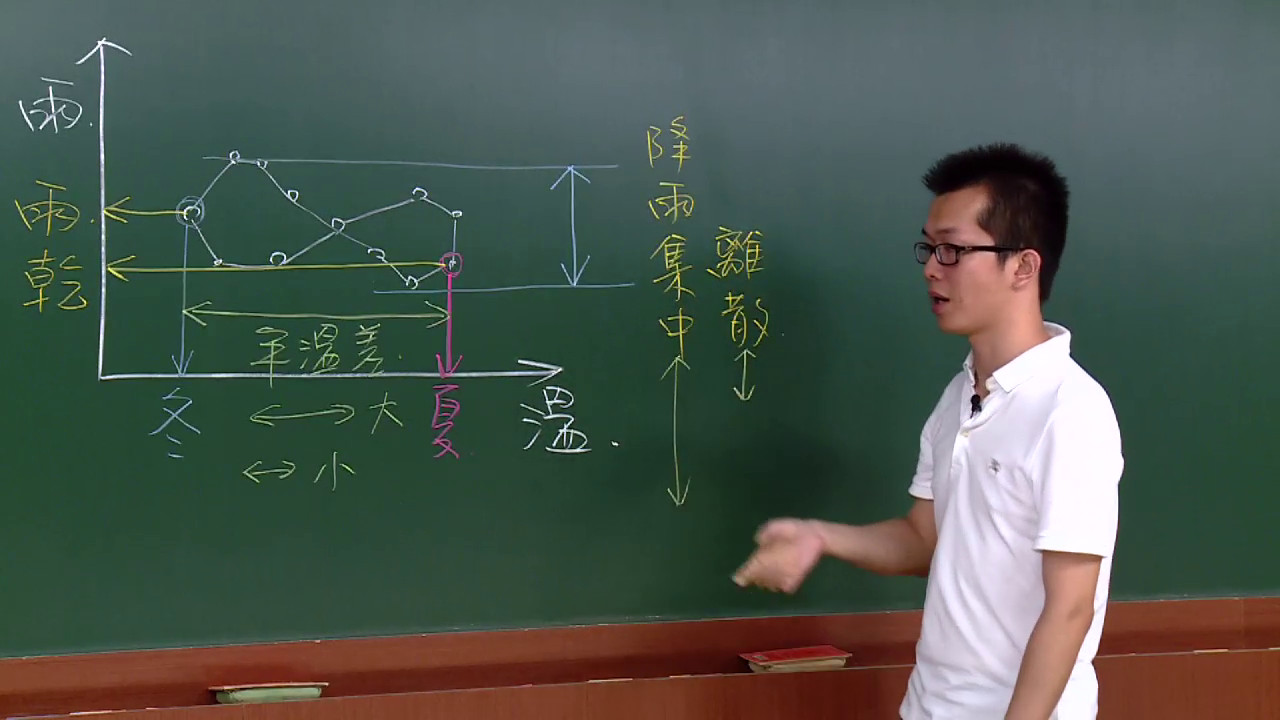 雨.
雨.
乾
年溫差.
冬
大
夏
溫.
小
降雨集中
離散.